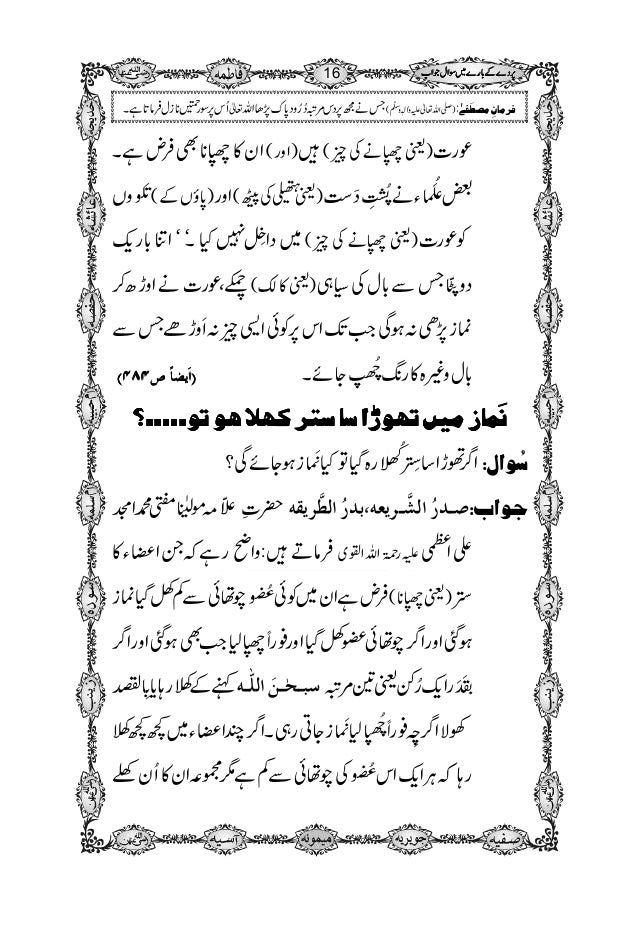 پردے کے بارے میں سوال جواب
16
فاطمہ
رضی اللہ عنہا
فرمانِ مصطفٰے: (صلی اللہ تعالیٰ علیہ واٰلہ وسلم) جس نے مجھ پر دس مرتبہ دُرُود پاک پڑھا اللہ تعالیٰ اُس پر سو رحمتیں نازل فرماتا ہے۔
عورت (یعنی چھپانے کی چیز) ہیں (اور) ان کا چھپانا بھی فرض ہے۔
بعض عُلَماء نے پُشتِ دَست (یعنی ہتھیلی کی پیٹھ) اور (پاؤں کے) تلووں
کو عورت (یعنی چھپانے کی چیز) میں داخِل نہیں کیا۔‘‘ اتنا باریک
دوپٹّا جس سے بال کی سیاہی (یعنی کالک) چمکے، عورت نے اوڑھ کر
نماز پڑھی نہ ہوگی جب تک اس پر کوئی ایسی چیز نہ اَوڑھے جس سے
بال وغیرہ کا رنگ چُھپ جائے۔ (اَیضاً ص ۴۸۴)
نَماز میں تھوڑا سا ستر کھلا ہو تو.....؟
سُوال: اگر تھوڑا سا سِتر کُھلا رہ گیا تو کیا نَماز ہو جائے گی؟
جواب: صدرُ الشَّریعہ، بدرُ الطَّریقہ حضرتِ علّامہ مولیٰنا مفتی محمد امجد
علی اعظمی علیہ رحمۃ اللہ القوی فرماتے ہیں: واضح رہے کہ جن اعضاء کا
ستر (یعنی چھپانا) فرض ہے ان میں کوئی عُضو چوتھائی سے کم کھل گیا نماز
ہوگئی اور اگر چوتھائی عضو کھل گیا اور فوراً چھپا لیا جب بھی ہوگئی اور اگر
بقَدَر ایک رُکن یعنی تین مرتبہ سبحٰنَ اللہ کہنے کے کھلا رہا یا بالقصد
کھولا اگرچِہ فوراً چُھپا لیا نَماز جاتی رہی۔ اگر چند اعضاء میں کچھ کچھ کھلا
رہا کہ ہر ایک اس عُضو کی چوتھائی سے کم ہے مگر مجموعہ ان کا اُن کھلے
خدیجہ
عائشہ
حفصہ
ام حبیبہ
ام سلمہ
سودہ
زینب
رضی اللہ عنہن
صفیہ
جویریہ
میمونہ
آسیہ
رضی اللہ عنہن